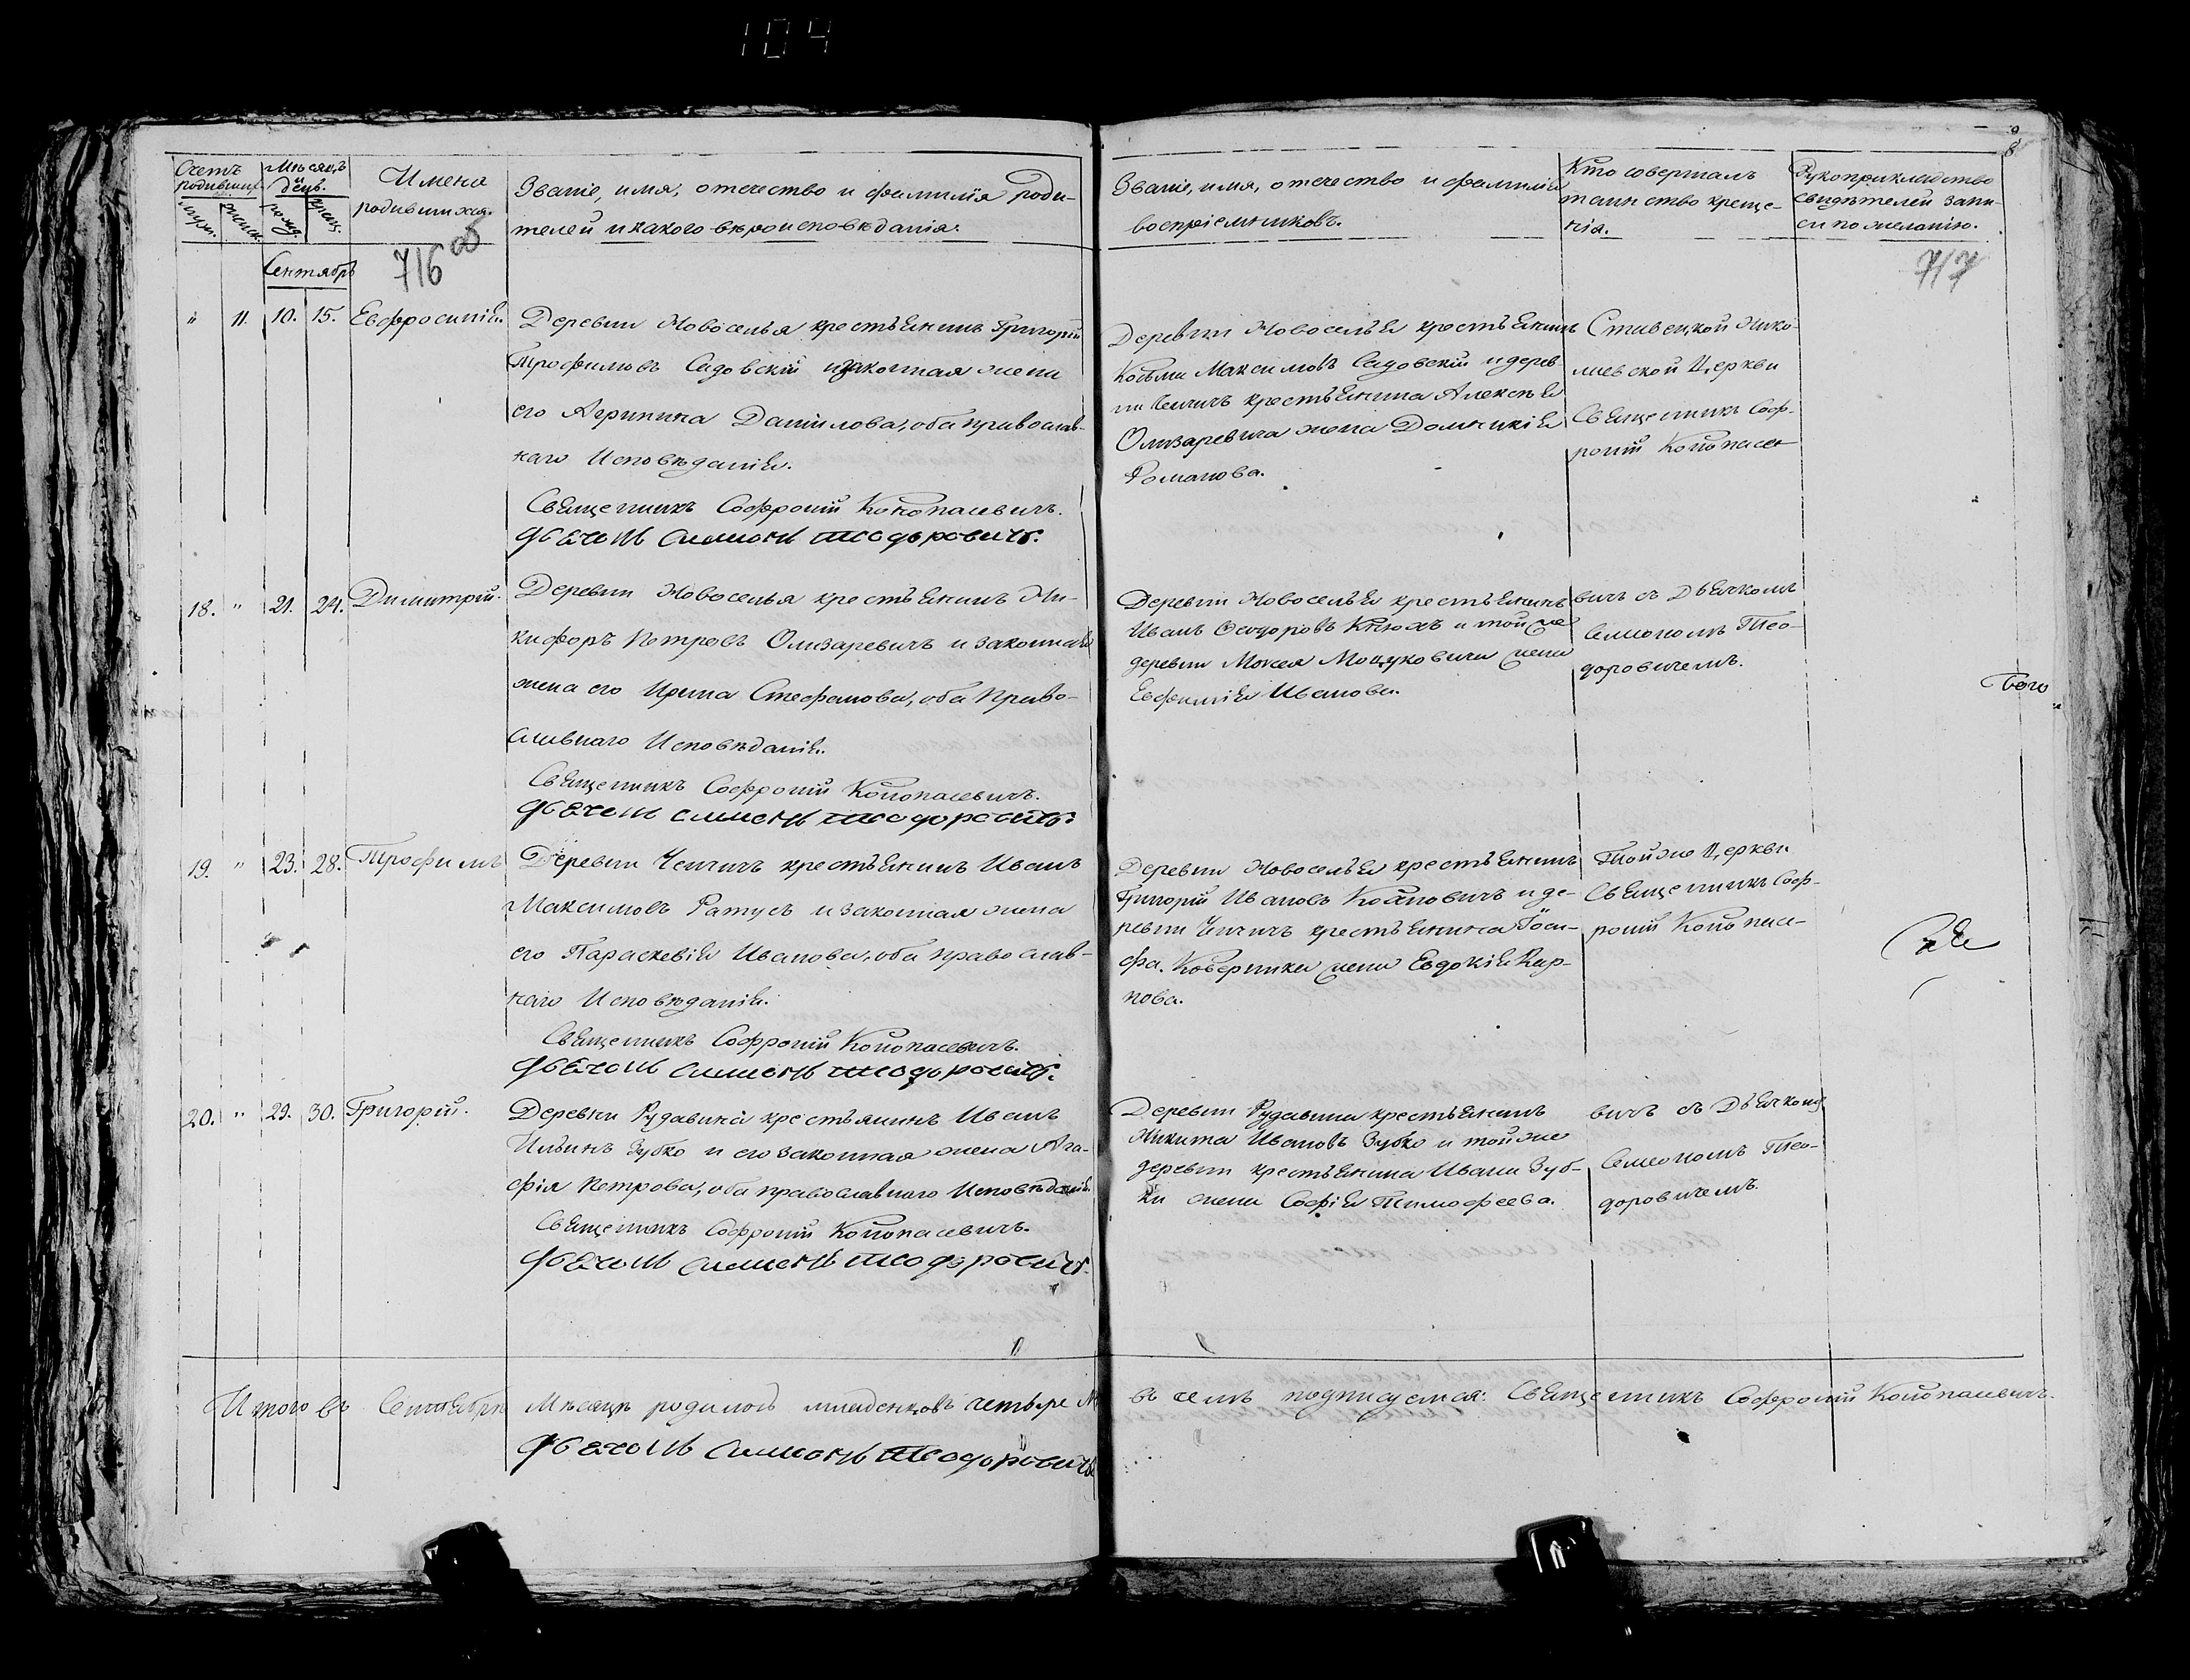 104
Счетъ родившихся
Мѣсяцъ и день
Имена
родившихся.
муж. женск. рожд. крещ.
Званіе, имя, отечество и фамилія роди-
телей и какого вѣроисповѣданія.
Званіе, имя, отечество и фамилія
воспріемниковъ.
Кто совершалъ
таинство креще-
нія.
Рукоприкладство
свидѣтелей запи-
си по желанію.
Сентябрь
716 об
717
" 11. 10. 15. Евфросинія.
Деревни Новоселья крестьянинъ Григорій
Трофимовъ Садовскій и законная жена
его Агрипина Данилова, оба православ-
наго Исповѣданія.
Священникъ Софроній Конопасевичъ.
Дьячокъ Симеонъ Теодоровичъ.
Деревни Новоселья крестьянинъ
Козьма Максимовъ Садовскій и дерев-
ни Чечичъ крестьянина Алексѣя
Олизаревича жена Домникія
Романова.
Ставецкой Нико-
лаевской Церкви
Священникъ Соф-
роній Конопасе-
18. " 21. 24. Димитрій.
Деревни Новоселья крестьянинъ Ни-
кифоръ Петровъ Олизаревичъ и законная
жена его Ирина Стефанова, оба Право-
славнаго Исповѣданія.
Священникъ Софроній Конопасевичъ.
Дьячокъ Симеонъ Теодоровичъ.
Деревни Новоселья крестьянинъ
Иванъ Ѳеодоровъ и той же
деревни Моисея Моцуковича жена
Евфимія Иванова.
вичъ съ Дьячкомъ
Симеономъ Тео-
доровичемъ.
19. " 23. 28. Трофимъ
Деревни Чечичъ крестьянинъ Иванъ
Максимовъ Ратусъ и законная жена
его Параскевія Иванова, оба православ-
наго Исповѣданія.
Священникъ Софроній Конопасевичъ.
Дьячокъ Симеонъ Теодоровичъ.
Деревни Новоселья крестьянинъ
Григорій Ивановъ и де-
ревни Чечичъ крестьянина Іоси-
фа Коверника жена Евдокія Кар-
пова.
Той же Церкви
Священникъ Соф-
роній Конопасе-
20. " 29. 30. Григорій.
Деревни Рудавина крестьянинъ Иванъ
Ильинъ Зубко и его законная жена Ага-
фія Петрова, оба православного Исповѣданія.
Священникъ Софроній Конопасевичъ.
Дьячокъ Симеонъ Теодоровичъ.
Деревни Рудавина крестьянинъ
Никита Ивановъ Зубко и той же
деревни крестьянина Ивана Зуб-
ки жена Софія Тимофеева.
вичъ съ Дьячкомъ
Симеономъ Тео-
доровичемъ.
Итого въ Сентябрѣ Мѣсяцѣ родилось младенцовъ четыре
въ чемъ подписуемся: Священникъ Софроній Конопасевичъ.
Дьячокъ Симеонъ Теодоровичъ